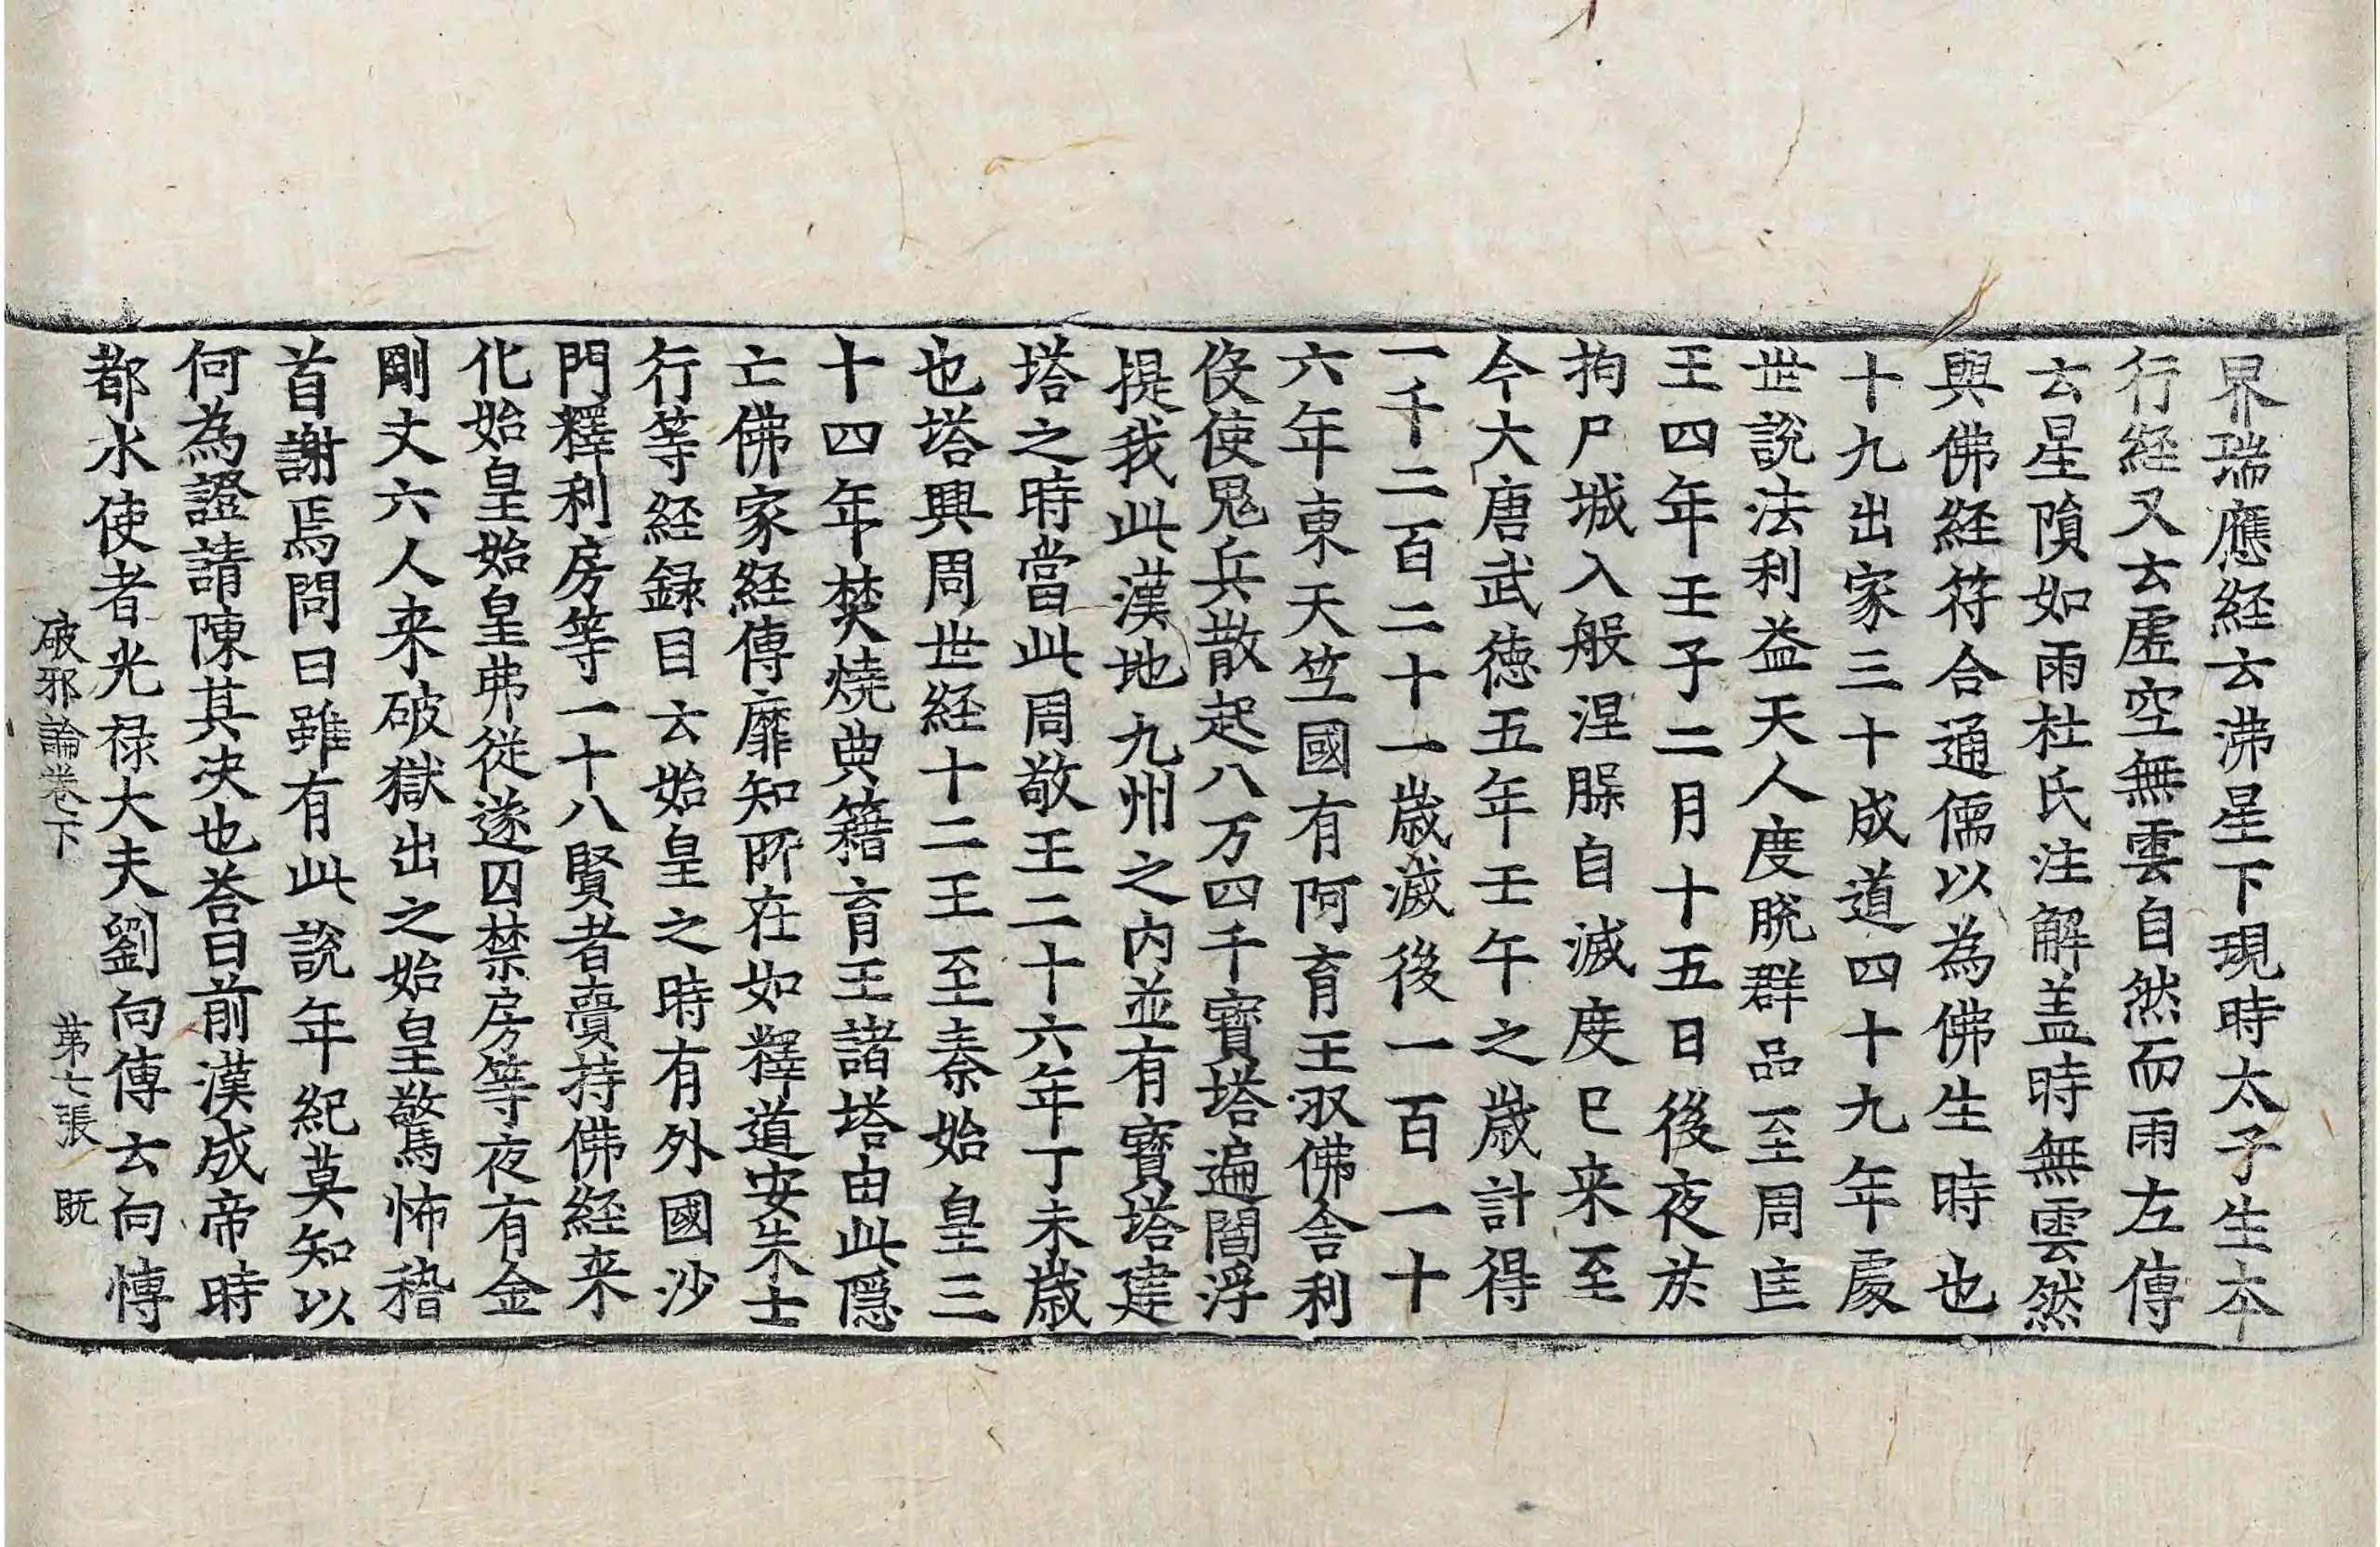 界瑞應経云沸星下現時太子生夲
行経又云虚空無雲自然而雨左傳
云星隕如雨杜氏注解盖時無雲然
與佛経符合通儒以為佛生時也
十九出家三十成道四十九年處
世說法利益天人度脱群品至周匡
王四年壬子二月十五日後夜於
拘尸城入般涅脲自滅度已来至
今大唐武徳五年壬午之歳計得
一千二百二十一歳滅後一百一十
六年東天竺國有阿育王収佛舍利
伇使鬼兵散起八万四千寳塔遍閻浮
提我此漢地九州之内並有寳塔建
塔之時當此周敬王二十六年丁未歳
也塔興周世経十二王至秦始皇三
十四年焚燒典籍育王諸塔由此隱
亡佛家経傳靡知所在如釋道安朱士
行等経録目云始皇之時有外國沙
門釋利房等一十八賢者賷持佛経来
化始皇始皇弗從遂囚禁房等夜有金
剛丈六人来破獄出之始皇驚怖稽
首謝焉問曰雖有此說年紀莫知以
何為證請陳其决也荅曰前漢成帝時
都水使者光禄大夫劉向傳云向博
破邪論卷下 第七張 既